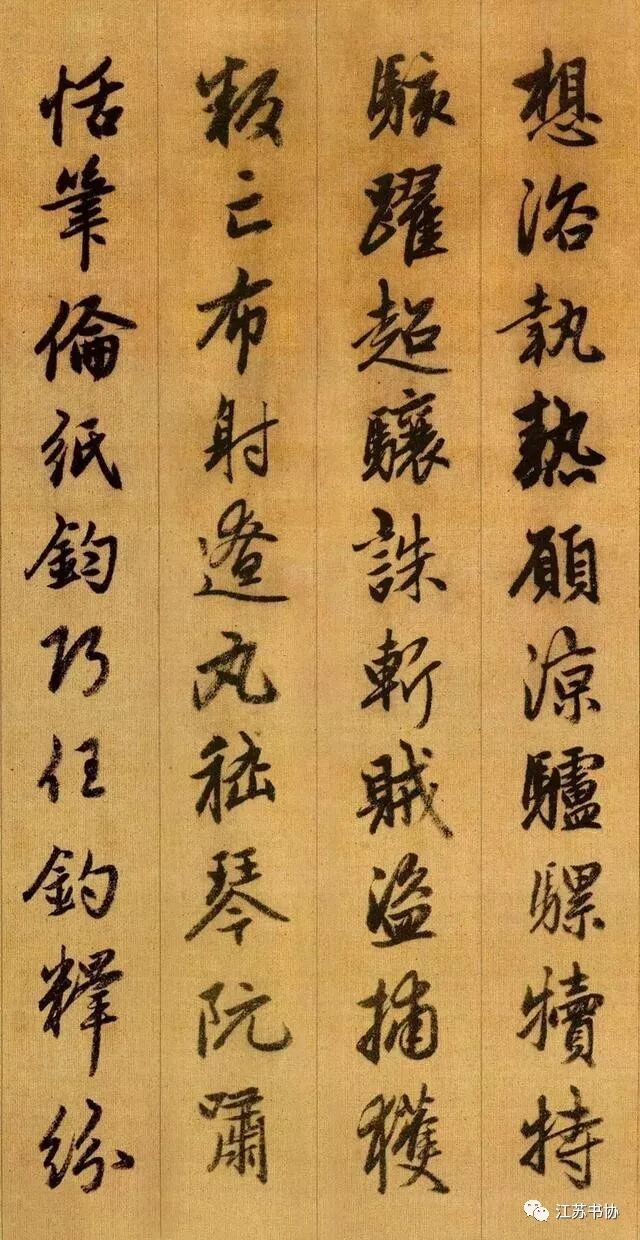 想浴執熱願涼驢騾犢特
駭躍超驤誅斬賊盜捕獲
叛亡布射遼丸嵇琴阮嘯
恬筆倫紙鈞巧任釣釋紛
江苏书协